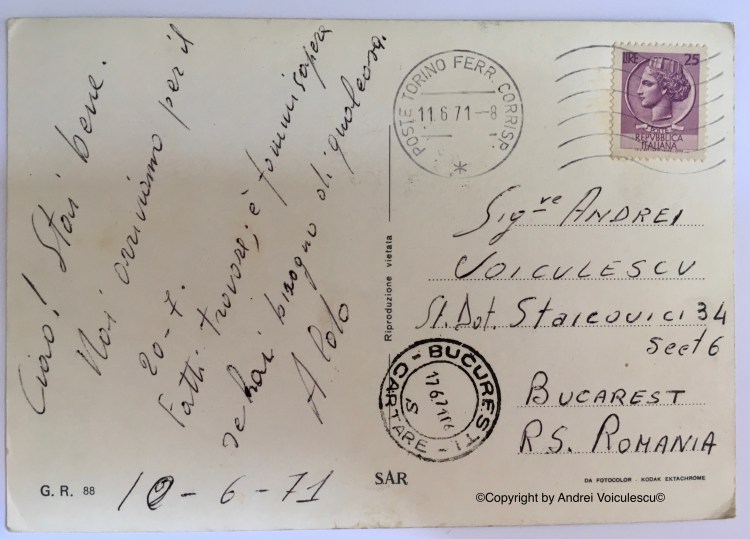 Ciao! Stai bene.
Noi arriviamo per il
20-7.
Fatti trovare, e fammi sapere
se hai bisogno di qualcosa.
Aldo
10-6-71
G. R. 88
SAR
Riproduzione vietata
POSTE TORINO FERR. CORRISP.
11.6.71-8
*
LIRE 25
REPVBBLICA
ITALIANA
Sigre ANDREI
VOICULESCU
St. Dot. Staicovici 34
Sect 6
BUCAREST
RS. ROMANIA
BUCUREȘTI
CARTARE
DA FOTOCOLOR - KODAK EKTACHROME
©Copyright by Andrei Voiculescu©